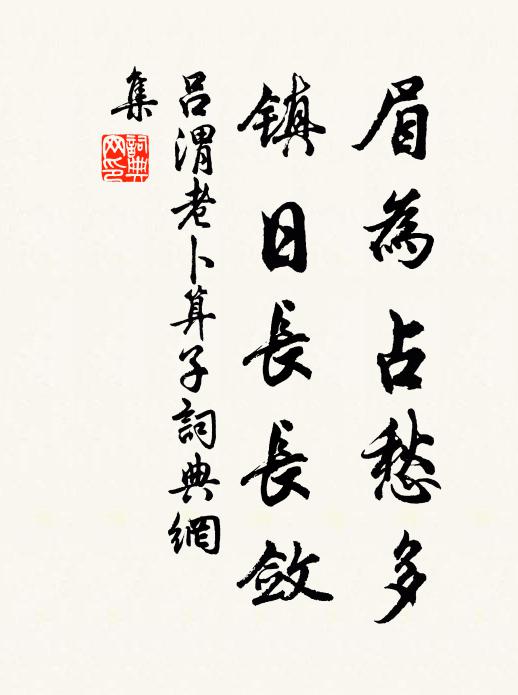 眉為占愁多
鎮日長長斂
呂渭老卜算子詞典網
集
詞典
网印